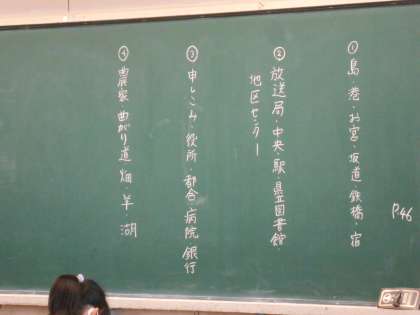 P.46
① 島・港・お宮・坂道・鉄橋・宿
② 放送局・中央・駅・県立図書館
地区センター
③ 申しこみ・役所・都合・病院・銀行
④ 農家・曲がり道・畑・羊・湖